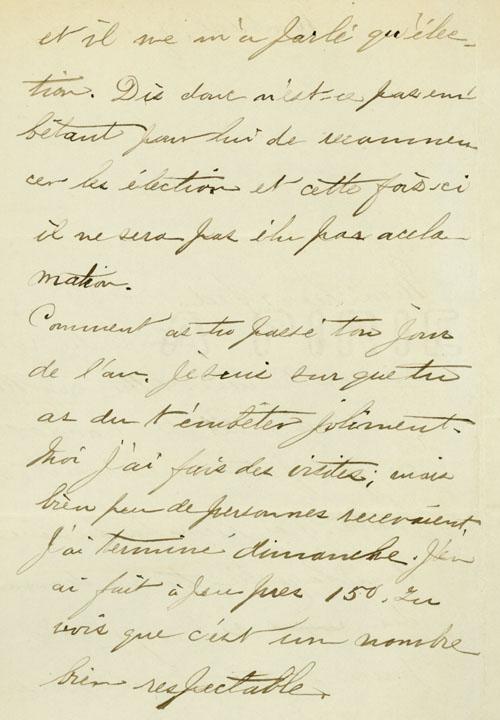 et il ne m'a parlé qu'élec-
tion. Dis donc n'est-ce pas em-
bêtant pour lui de recommen
cer les élection et cette fois-ci
il ne sera pas élu par acela-
mation.
Comment as-tu passé ton jour
de l'an. Je suis sur que tu
as du t'embêter joliment.
Moi j'ai fais des visites; mais
bien peu de personnes recevaient
J'ai terminé dimanche. J'en
ai fait à peu pres 150. Tu
vois que c'est un nombre
bien respectable.